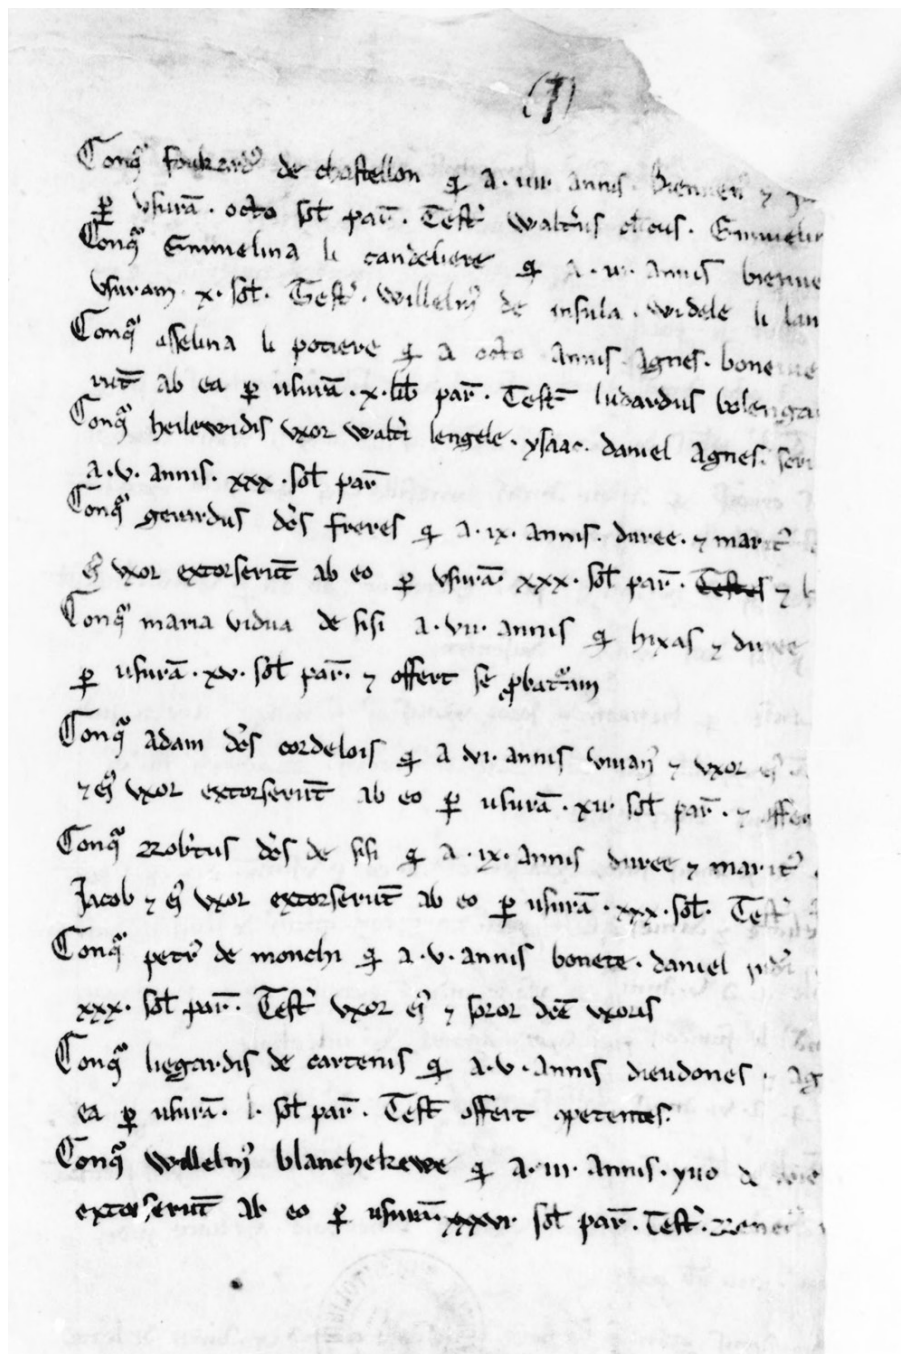 (I)
Conqͣ foukardꝰ de chastellon qđ a · iiii · annis · biennenꝰ ⁊
ꝑ usurā · octo sol̄ par̄ · Test̄ Walt̄us cl̄icus · Emmelin
Conqͣ Emmelina li candeliere qđ a · vi · annis bienne
usuram · x · sol̄ · Test̄ · Willelmꝰ de insula · widele li lan
Conqͣ asselina li potiere qđ a octo annis · Agnes · bone
runt̄ ab ea ꝑ usurā · x · lib̄ par̄ · Test̄ ludardus bolenga
Conqͣ heilewidis uxor walt̄i lengele · ysaac · daniel Agnes ·
a · v · annis · xxx · sol̄ par̄
Conqͣ gerardus dc̄s freres qđ a · ix · annis · duree · ⁊ maritꝰ
eiꝰ uxor extorserūt ab eo ꝑ usurā · xxx · sol̄ par̄ · Testes ⁊
Conqͣ maria vidua de sisi a · vii · annis qđ hixas ⁊ duree
ꝑ usurā · xv · sol̄ par̄ · ⁊ offert se ꝓbaturam
Conqͣ adam dc̄s cordelois qđ a vi · annis vivanꝰ ⁊ uxor eiꝰ
⁊ eiꝰ uxor extorserūt ab eo ꝑ usurā · xii · sol̄ par̄ · ⁊ offer
Conqͣ Rob̄tus dc̄s de sisi qđ a · ix · annis duree ⁊ maritꝰ
Jacob ⁊ eiꝰ uxor extorserūt ab eo ꝑ usurā · xxx · sol̄ · Test̄
Conqͣ petrꝰ de monchi qđ a · v · annis bonete · daniel
xxx · sol̄ par̄ · Test̄ uxor eiꝰ ⁊ soror dc̄e uxoris
Conqͣ liegardis de cartenis qđ a · v · annis dieudones · ⁊ ag
ea ꝑ usurā · l · sol̄ par̄ · Test̄ offert ꝯpetentes
Conqͣ Willelmꝰ blanchekewe qđ a · iii · annis · yvo de
extorserūt ab eo ꝑ usurā · xxxvi · sol̄ par̄ · Test̄ · Renerꝰ